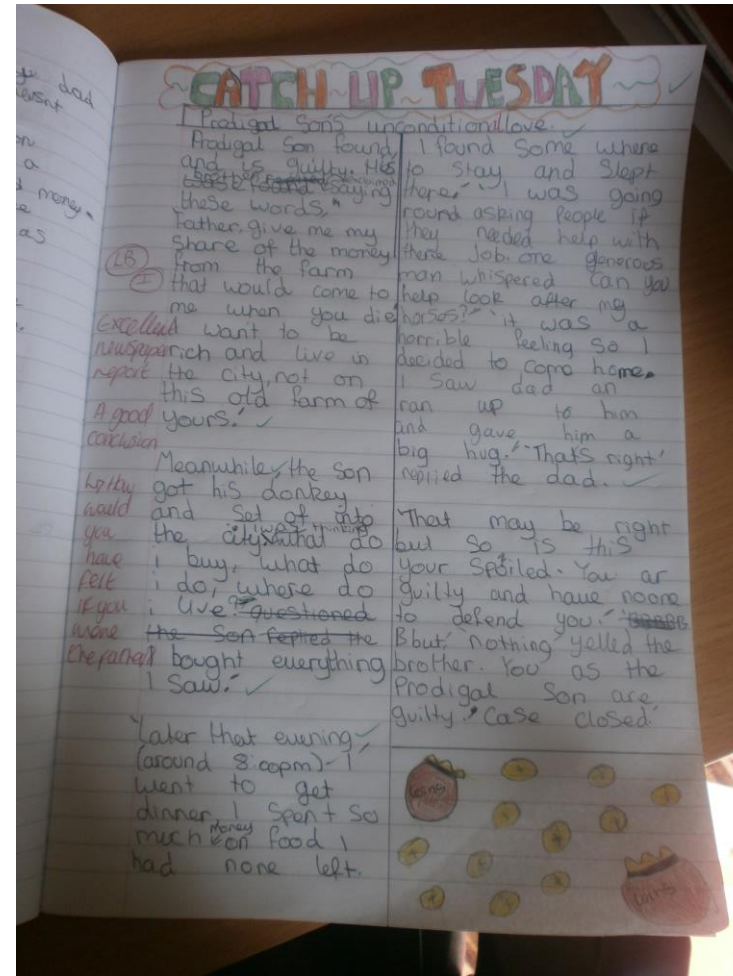 CATCH UP TUESDAY
Prodigal Son's unconditional love.
Prodigal Son found,
and is guilty. His
brother claimed saying
these words,"
Father, give me my
share of the money
from the farm
that would come to
me when you die
I want to be
rich and live in
the city, not on
this old farm of
yours.'
Meanwhile, the son
got his donkey
and set of into
the city. I was thinking what do
i buy, what do
i do, where do
i live? questioned
the son replied the
I bought everything
I saw.'
'Later that evening
(around 8:00pm)- I
went to get
dinner. I spent so
much money on food I
had none left.
I found some where
to stay and slept
there.' 'I was going
round asking people if
they needed help with
there job. one generous
man whispered can you
help look after my
horses?' 'it was a
horrible feeling so I
decided to come home.
I saw dad an
ran up to him
and gave him a
big hug.' 'That's right'
replied the dad.
'That may be right
but so is this
your spoiled. You ar
guilty and have noone
to defend you.'
Bbut, 'nothing' yelled the
brother. You as the
Prodigal Son are
guilty. Case closed.'
LB
I
Excellent
newspaper
report
A good
conclusion
why
would
you
have
felt
if you
were
the father?
coins
coins
dad
doesnt
on
a
money.
e
as